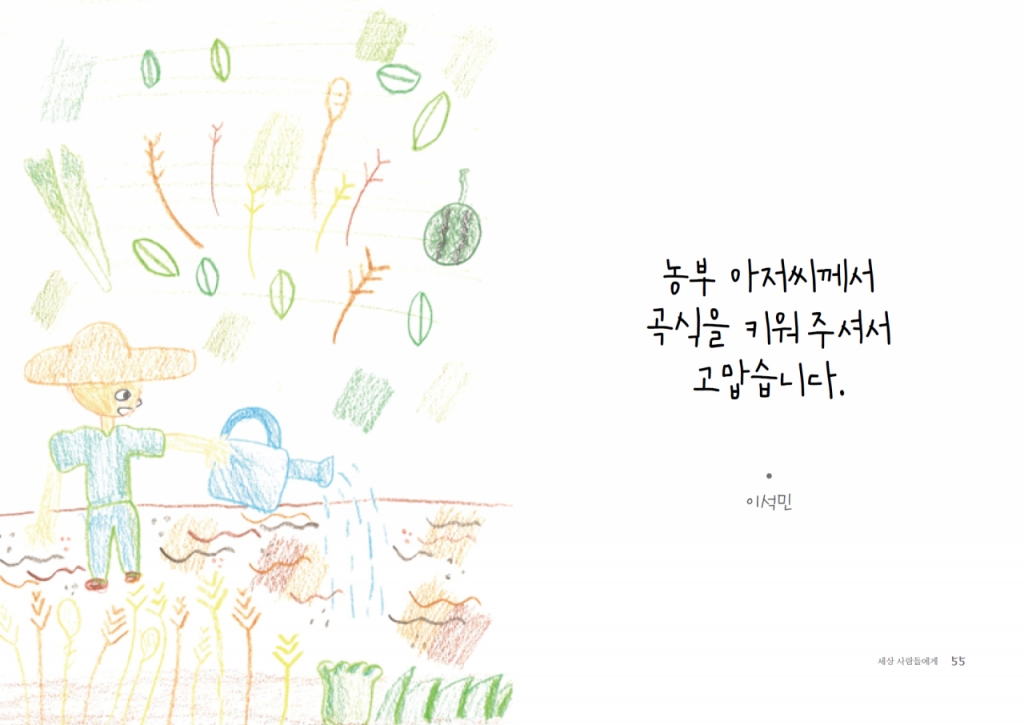 농부 아저씨께서
곡식을 키워 주셔서
고맙습니다.
이석민
세상 사람들에게 55